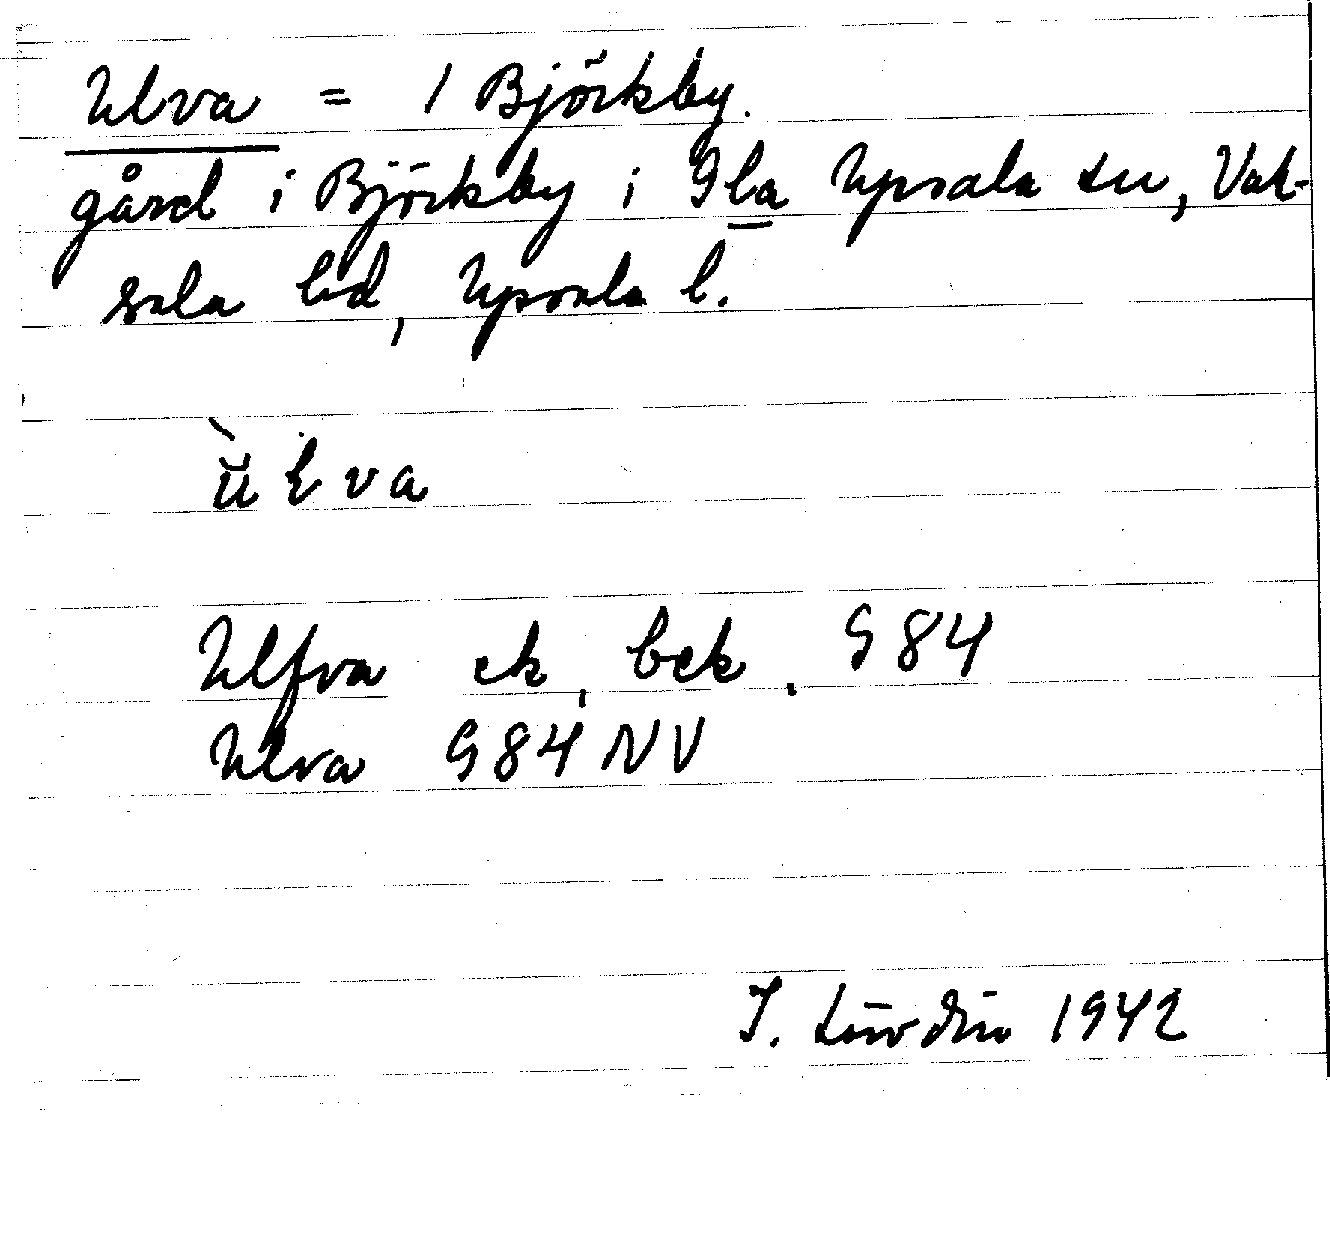 Ulva = 1 Björkby.
gård i Björkby i Gla Upsala sn, Vak-
sala hd, Upsala l.
ŭ̀lva
Ulfva ek, bek. G84
Ulva G84NV
J. 1942